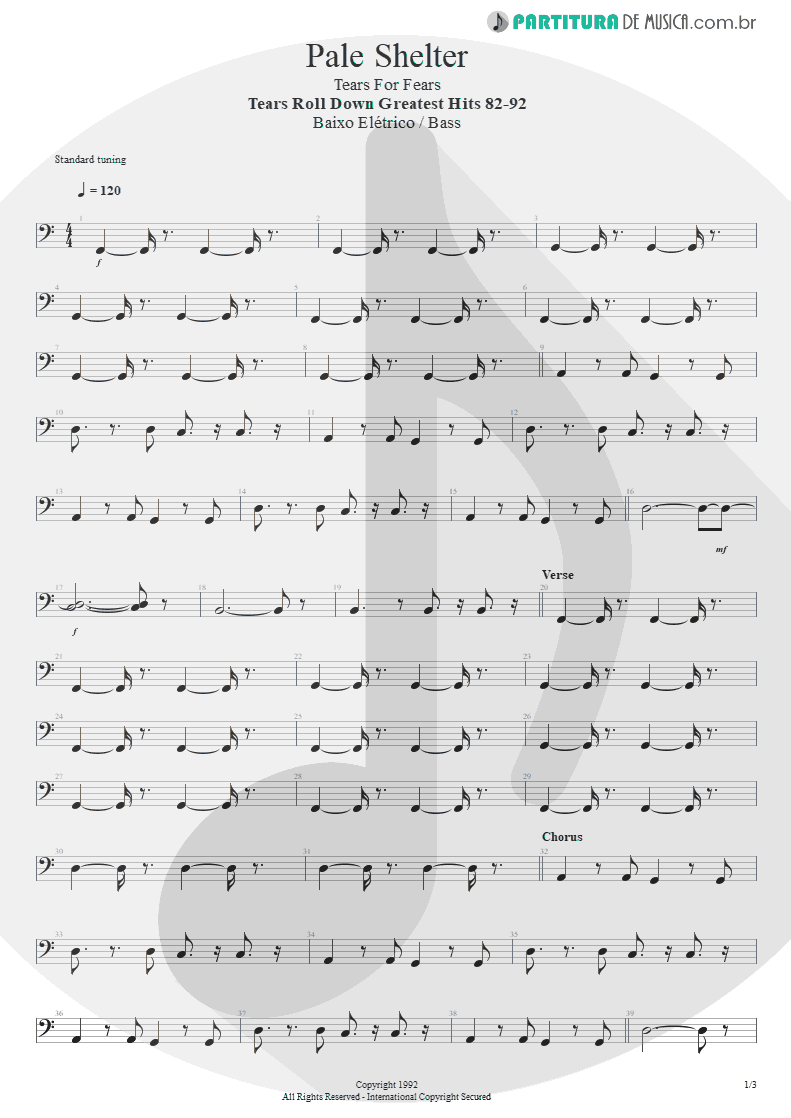 PARTITURA DE MUSICA.com.br
Pale Shelter
Tears For Fears
Tears Roll Down Greatest Hits 82-92
Baixo Elétrico / Bass
Standard tuning
= 120
4
4
1 2 3
f
4 5 6
7 8 9
10 11 12
13 14 15 16
mf
Verse
17 18 19 20
f
21 22 23
24 25 26
27 28 29
Chorus
30 31 32
33 34 35
36 37 38 39
Copyright 1992
All Rights Reserved - International Copyright Secured
1/3